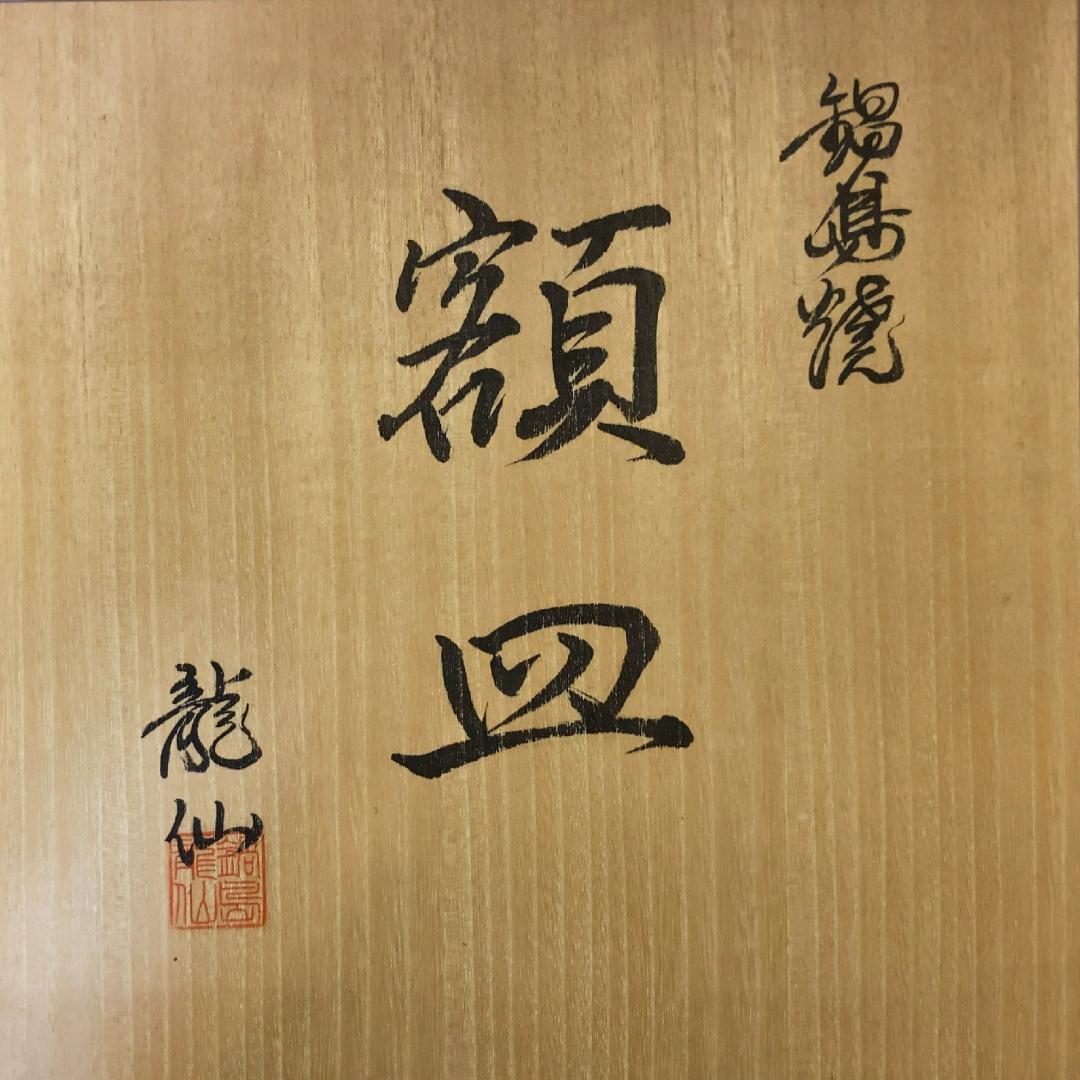 鍋島焼
額皿
龍仙
鍋島
龍仙